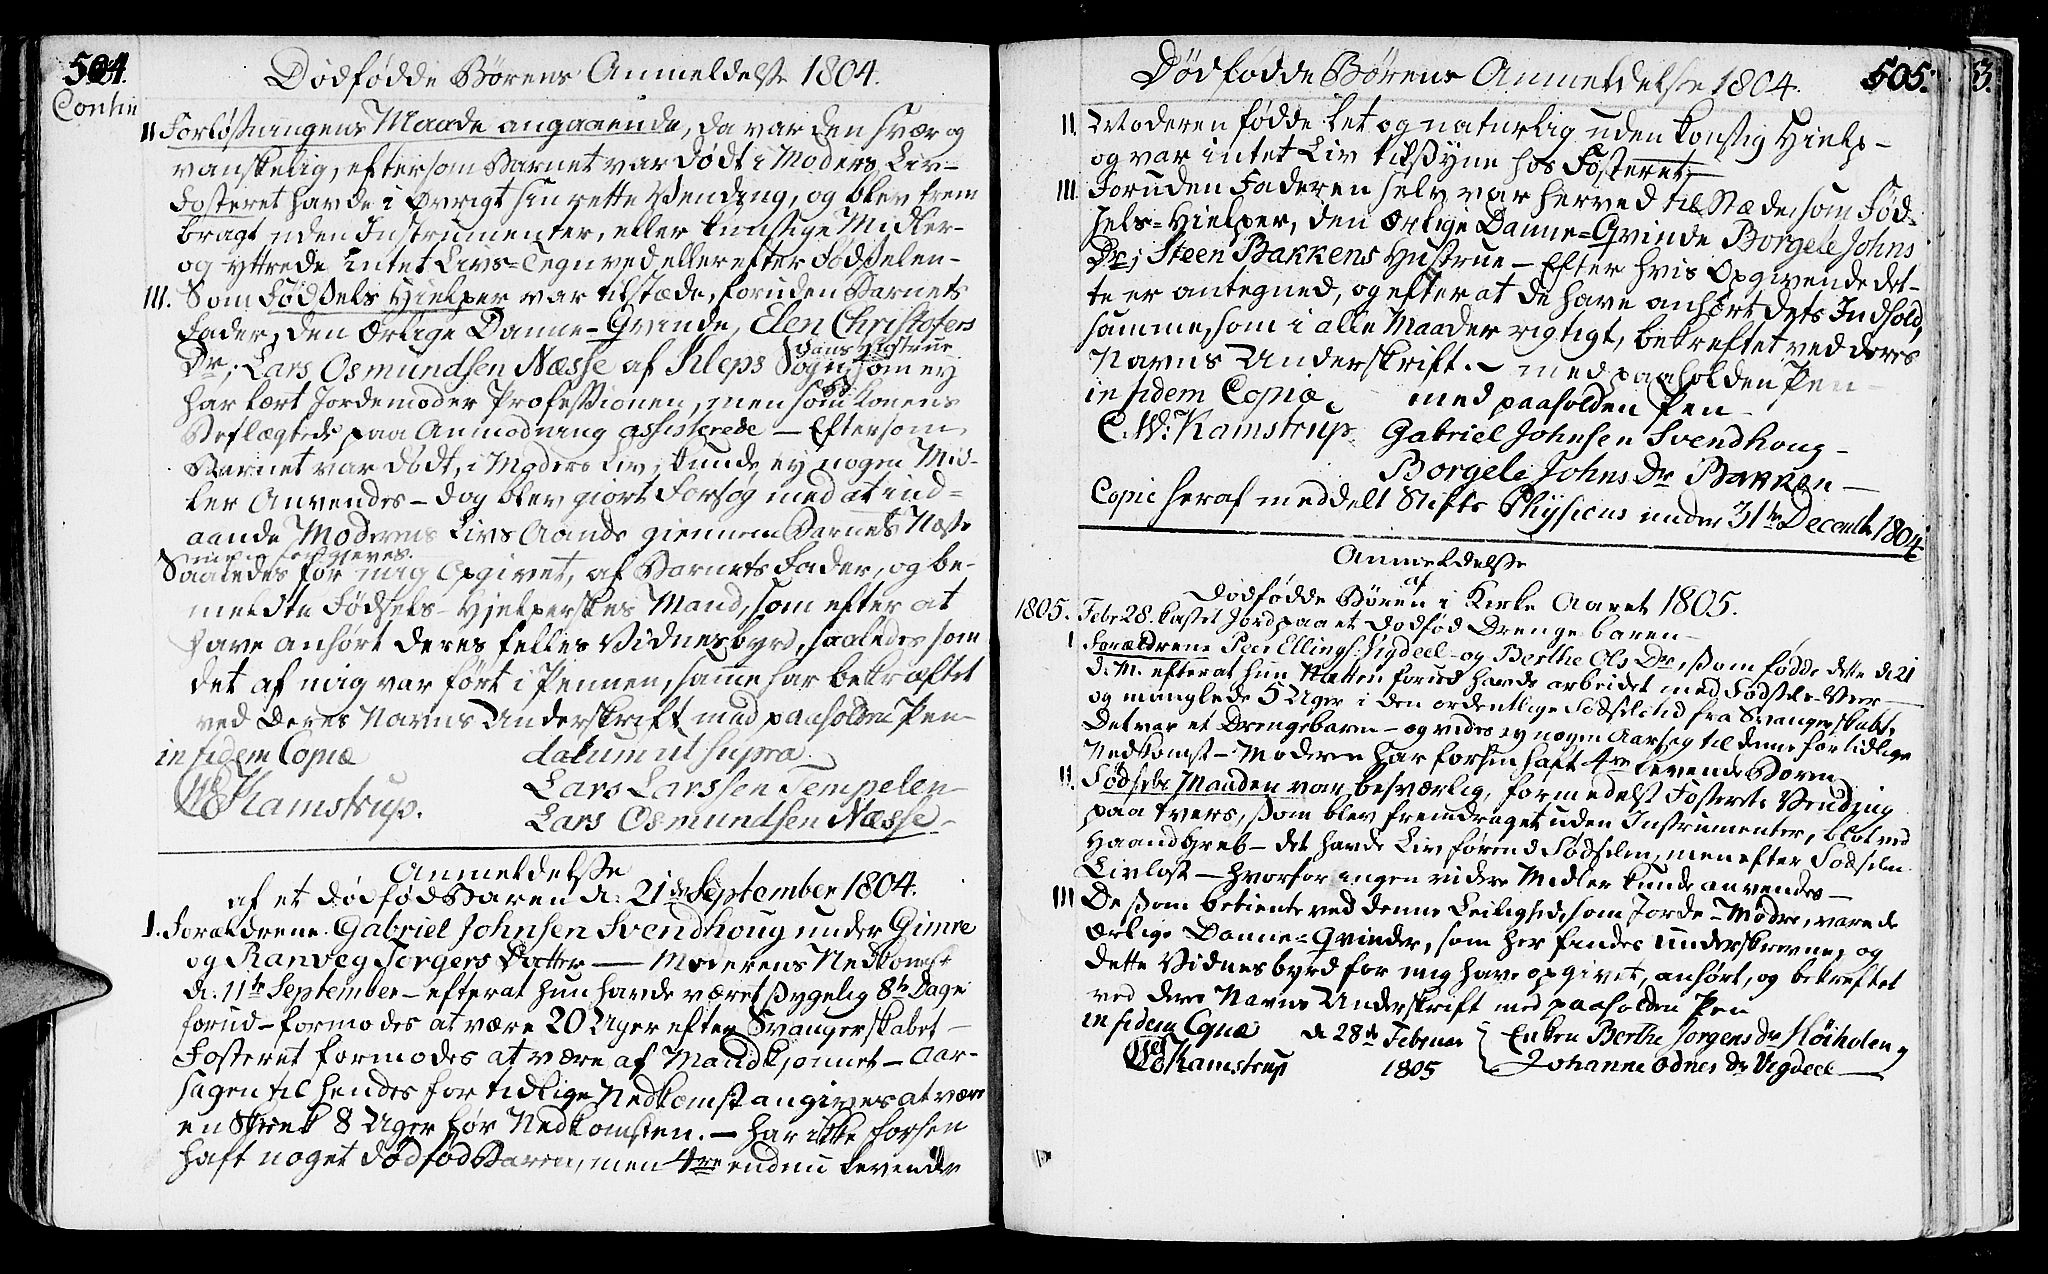 504.
Dødfødde Børens Anmeldelse 1804.
Contin
II Forløsningens Maade angaaende, da var den svær og
vanskelig, eftersom Barnet var dødt i Moders Liv –
Fosteret havde i øvrigt sin rette Vending, og blev frem
bragt uden Instrumenter, eller kunstige Midler –
og yttrede intet Livs=Tegn ved eller efter Fødselen –
III. Som Fødsels Hielper var tilstæde, foruden Barnets
Fader, den Ærlige Danne=Qvinde, Elen Christofers
Hans Hustrue
Dr, Lars Osmundsen Næsse af Kleps Sogn, som ey
har lært Jordemoder Professionen, men som Konens
Beslægtede paa Anmodning assisterede – Eftersom
Barnet var dødt, i Moders Liv, kunde ey nogen Mid-
ler Anvendes – dog blev giort Forsøg med at ind=
aande Moderens Livs Aande giennem Barnets Næse
Saaledes for mig Opgivet, af Barnets Fader, og be-
meldte Fødsels-Hjelperskes Mand, som efter at
have anhørt deres felles Vidnesbyrd, saaledes som
det af mig var ført i Pennen, samme har bekræftet
ved deres Navns Underskrift med paaholden Pen –
in fidem Copiæ datum ut supra
CWKamstrup. Lars Larssen Tempelen –
Lars Osmundsen Næsse –
Anmeldelse
af et dødfød Baren d. 21de September 1804.
I. Forældrene. Gabriel Johnsen Svendhoug under Gimre
og Ranveg Torgers Datter – Moderens Nedkomst
d. 11te September – efterat hun havde været sygelig 8te Dage
forud – formodes at være 20 Uger efter Svangerskabet –
Fosteret formodes at være af Mandkjønnet – Aar-
sagen til hendes for tidlige Nedkomst angives at være
en Skræk 8 Uger før Nedkomsten. – har ikke forhen
haft noget dødfød Baren, men 4re endnu levende
Dødfødde Børens Anmeldelse 1804. 505.
II. Moderen fødde let og naturlig uden konstig Hielp –
og var intet Liv tilsyne hos Fosteret –
III Foruden Faderen selv var herved til Stæde, som Fød-
sels=Hielper, den Ærlige Danne=Qvinde Borgele Johns
Dr, Steen Bakkens Hustrue – Efter hvis Opgivende det-
te er antegned, og efter at de have anhørt dets Indhold,
samme, som i alle Maader rigtigt, bekreftet ved deres
Navns Underskrift. – med paaholden Pen –
in fidem Copiæ. med paaholden Pen –
C.W. Kamstrup. Gabriel Johnsen Svendhoug –
Borgele Johns Dr Bakken –
Copie heraf meddelt Stifts Physicus under 31te Decembr 1804.
Anmeldelse
af
Dødfødde Børen i Kirke Aaret 1805.
1805. Febr 28. kastet Jord paa et dødfød Drenge baren –
I Forældrene Peer Ellings. Vigdeel – og Berthe Ols Dr, som fødde dette d 21
d. M. efterat hun Natten forud havde arbeidet med Fødsels-Veer –
og manglede 5 Uger i den ordentlige Fødselstid fra Svangerskabt,
Det var et Drengebaren – og vides ey nogen Aarsag til denne for tidlige
Nedkomst – Moderen har forhen haft 4re levende Børen
II. Fødsels Maaden var besværlig, formedelst Fosterets Vending
paa tvers, som blev fremdraget uden Instrumenter, blot ved
Haandgreb – det havde Liv førend Fødselen, men efter Fødselen
Livløst – hvorfor ingen videre Midler kunde anvendes –
III De som betiente ved denne Leilighed, som Jorde-Mødre, vare de
Ærlige Danne=Qvinder, som her findes underskrevne, og
dette Vidnesbyrd for mig have opgivet, anhørt, og bekreftet
ved deres Navns Underskrift med paaholden Pen
in fidem Copiæ d 28de Februar Enken Berthe Jorgens dr Høiholen
CWKamstrup 1805 Johanne Odnes dr Vigdeel –